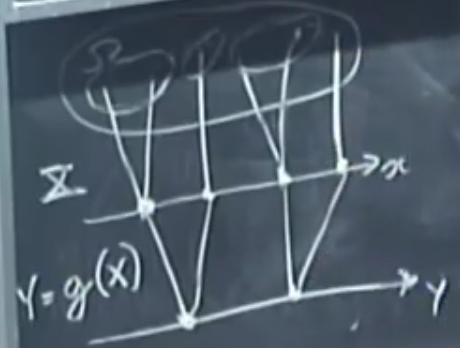 X
x
Y = g(X)
Y